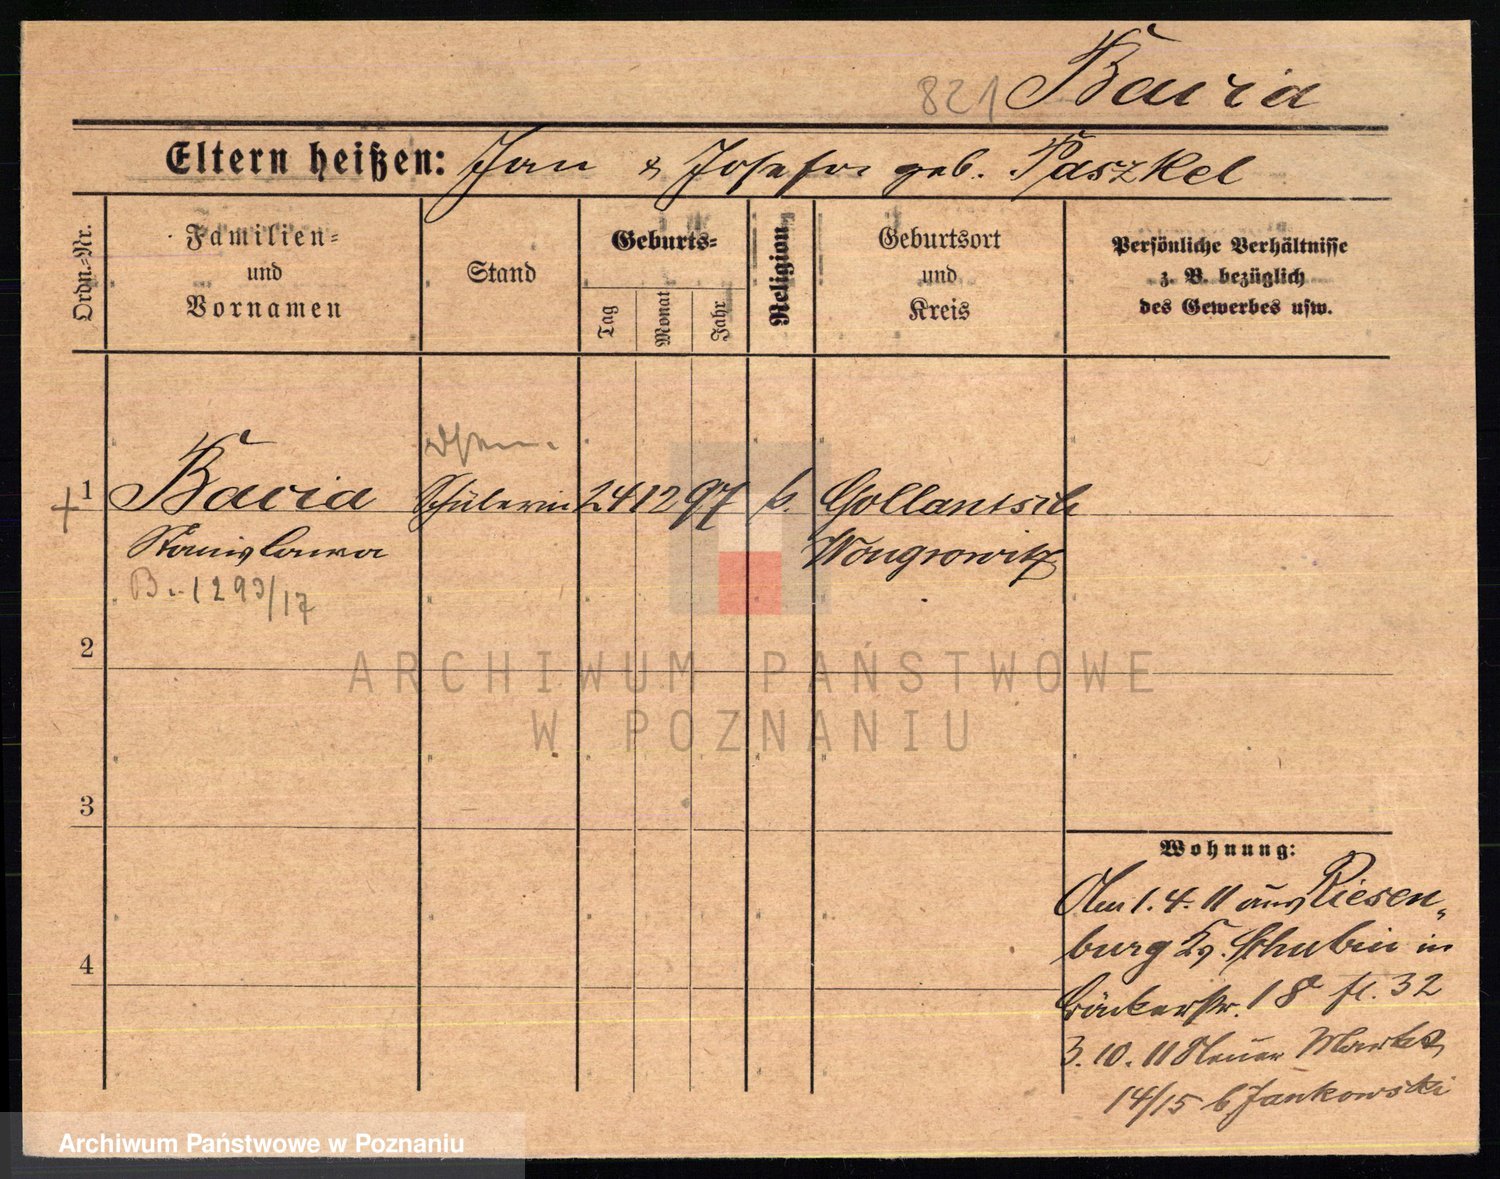 821 Bavia
Eltern heißen: Jan & Josefa geb. Paszkel
Ordn.-Nr.
Familien-
und
Vornamen
Stand
Geburts-
Tag
Monat
Jahr
Religion
Geburtsort
und
Kreis
Persönliche Verhältnisse
z. B. bezüglich
des Gewerbes usw.
+ 1 Bavia Schülerin 24 12 97 k. Gollantsch
Stanislawa Wongrowitz
B. 1293/17
2
ARCHIWUM PAŃSTWOWE
W POZNANIU
3
4
Wohnung:
1. 4. 11 aus Riesen-
burg Kr. Schubin in
Bäckerstr. 18 fl. 32
3. 10. 11 Neuer Markt
14/15 b. Jankowski
Archiwum Państwowe w Poznaniu